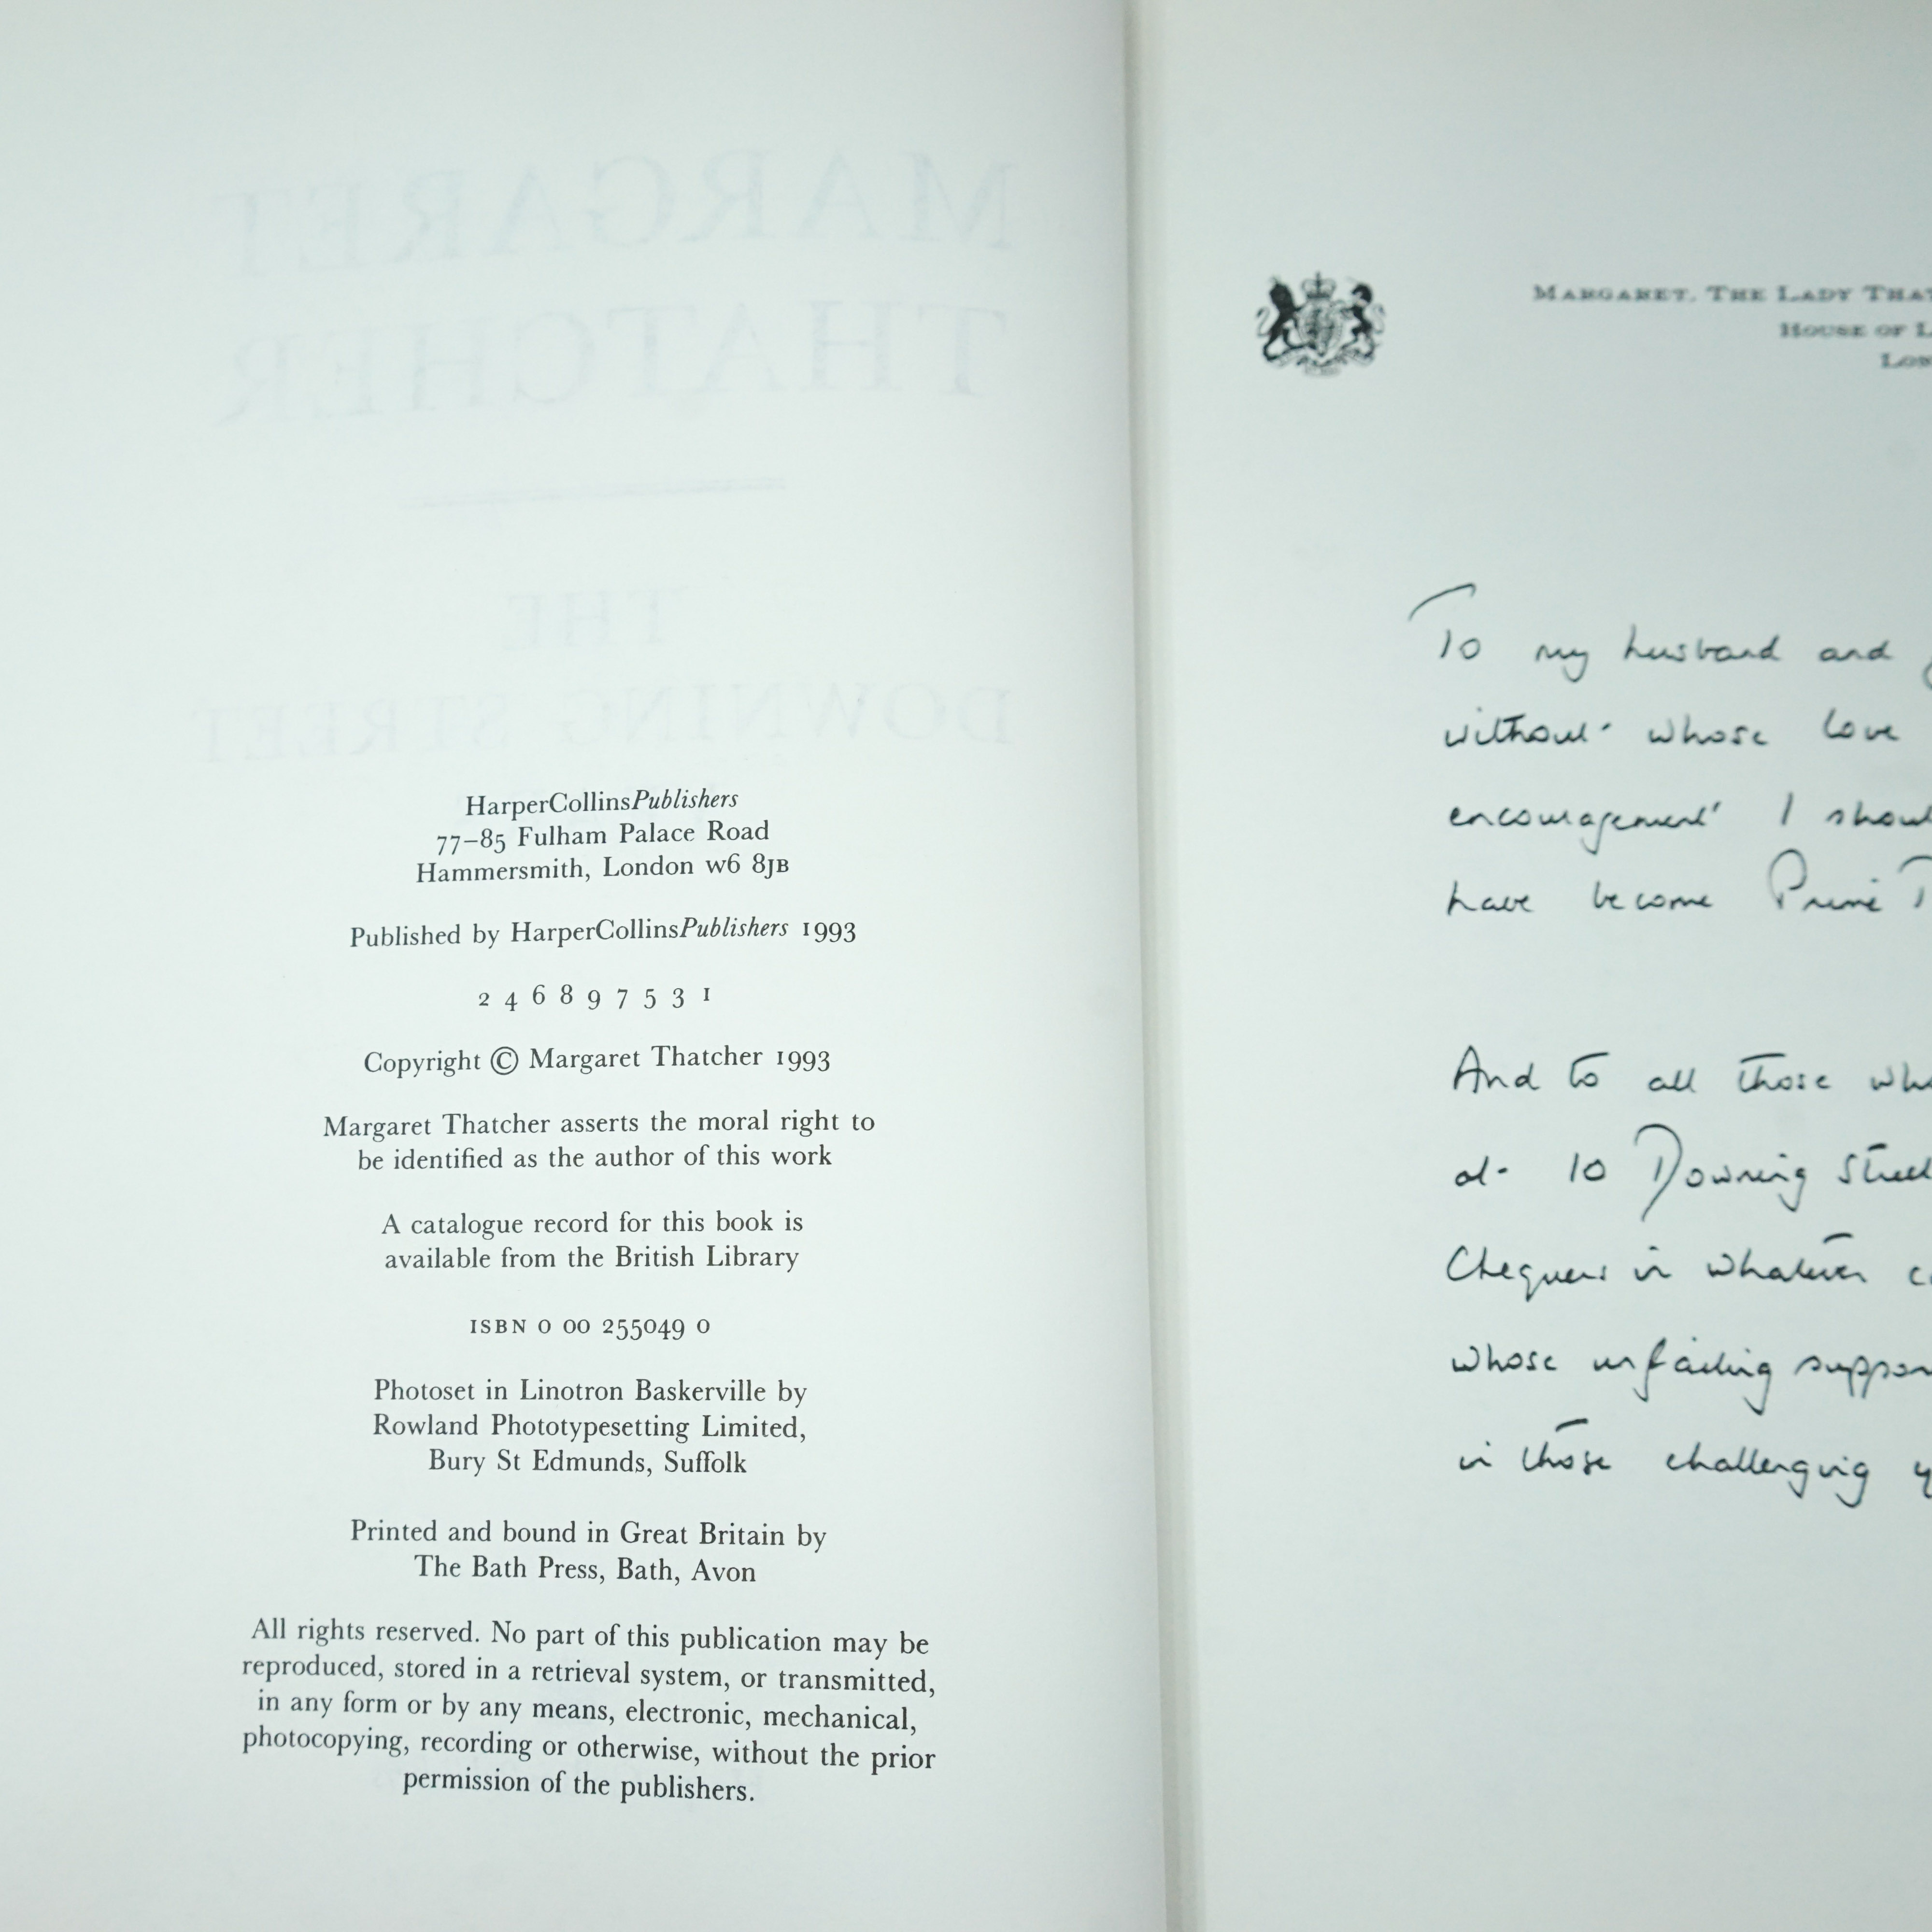 MARGARET
THATCHER
THE
DOWNING STREET
HarperCollinsPublishers
77–85 Fulham Palace Road
Hammersmith, London W6 8JB
Published by HarperCollinsPublishers 1993
2 4 6 8 9 7 5 3 1
Copyright © Margaret Thatcher 1993
Margaret Thatcher asserts the moral right to
be identified as the author of this work
A catalogue record for this book is
available from the British Library
ISBN 0 00 255049 0
Photoset in Linotron Baskerville by
Rowland Phototypesetting Limited,
Bury St Edmunds, Suffolk
Printed and bound in Great Britain by
The Bath Press, Bath, Avon
All rights reserved. No part of this publication may be
reproduced, stored in a retrieval system, or transmitted,
in any form or by any means, electronic, mechanical,
photocopying, recording or otherwise, without the prior
permission of the publishers.
MARGARET, THE LADY THAT
HOUSE OF L
LON
To my husband and
without whose love
encouragement I shoul
have become Prime
And to all those who
at 10 Downing Street
Chequers in whatever c
whose unfailing suppor
in those challenging y